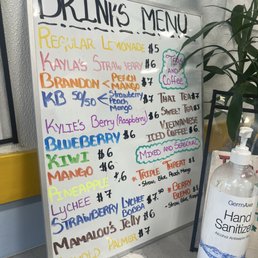 DRINK'S MENU
REGULAR LEMONADE $5
KAYLA'S STRAWBERRY $6
BRANDON < PEACH MANGO $7
KB 50/50 < Strawberry Peach Mango $7
KYLIE'S BERRY (RASPBERRY) $6
BLUEBERRY $6
KIWI $6
MANGO $6
PINEAPPLE $6
LYCHEE $7
STRAWBERRY LYCHEE BOOBA
MAMALOU'S JELLY $6
PALMER $7
TEAS
AND
COFFEE
THAI TEA $7
SWEET TEA
VIETNAMESE
ICED COFFEE $6
MIXED AND SEASONAL
TRIPLE THREAT
BERRY
BLEND
GermAway
Hand
Sanitizer